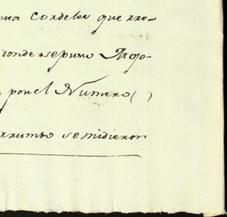 una Cordelex que xxo-
donde sepuso Mojo-
ponel Numero ( )
xxumbo semidieron